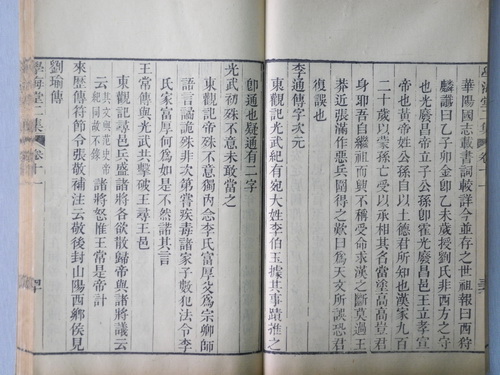 華陽國志載書詞較詳今並存之世祖報曰西狩獲
麟讖曰乙子卯金卽乙未歲授劉氏非西方之守
也光廢昌帝立子公孫卽霍光廢昌邑王立孝宣
帝也黃帝姓公孫自以土德君所知也漢家九百
二十歲以蒙孫亡受以承相其名當塗高高豈君
身耶吾自繼祖而興不稱受命求漢之斷莫過王
莽近張滿作惡兵圍得之歎曰為天文所誤恐君
復誤也
李通傳字次元
東觀記光武紀有宛大姓李伯玉據其事蹟推之
卽通也疑通有二字
光武初殊不意未敢當之
東觀記帝殊不意獨內念李氏富厚父為宗卿師
語言譎詭殊非次第嘗疾毒諸家子數犯法令李
氏家富厚何為如是不然諾其言
王常傳與光武共擊破王尋王邑
東觀記尋邑兵盛諸將各欲散歸帝與諸將議云
云其文與范史帝紀同故不錄諸將怒惟王常是帝計
來歷傳符節令張敬補注云敬後封山陽西鄉侯見
劉瑜傳
學海堂二集 卷十一